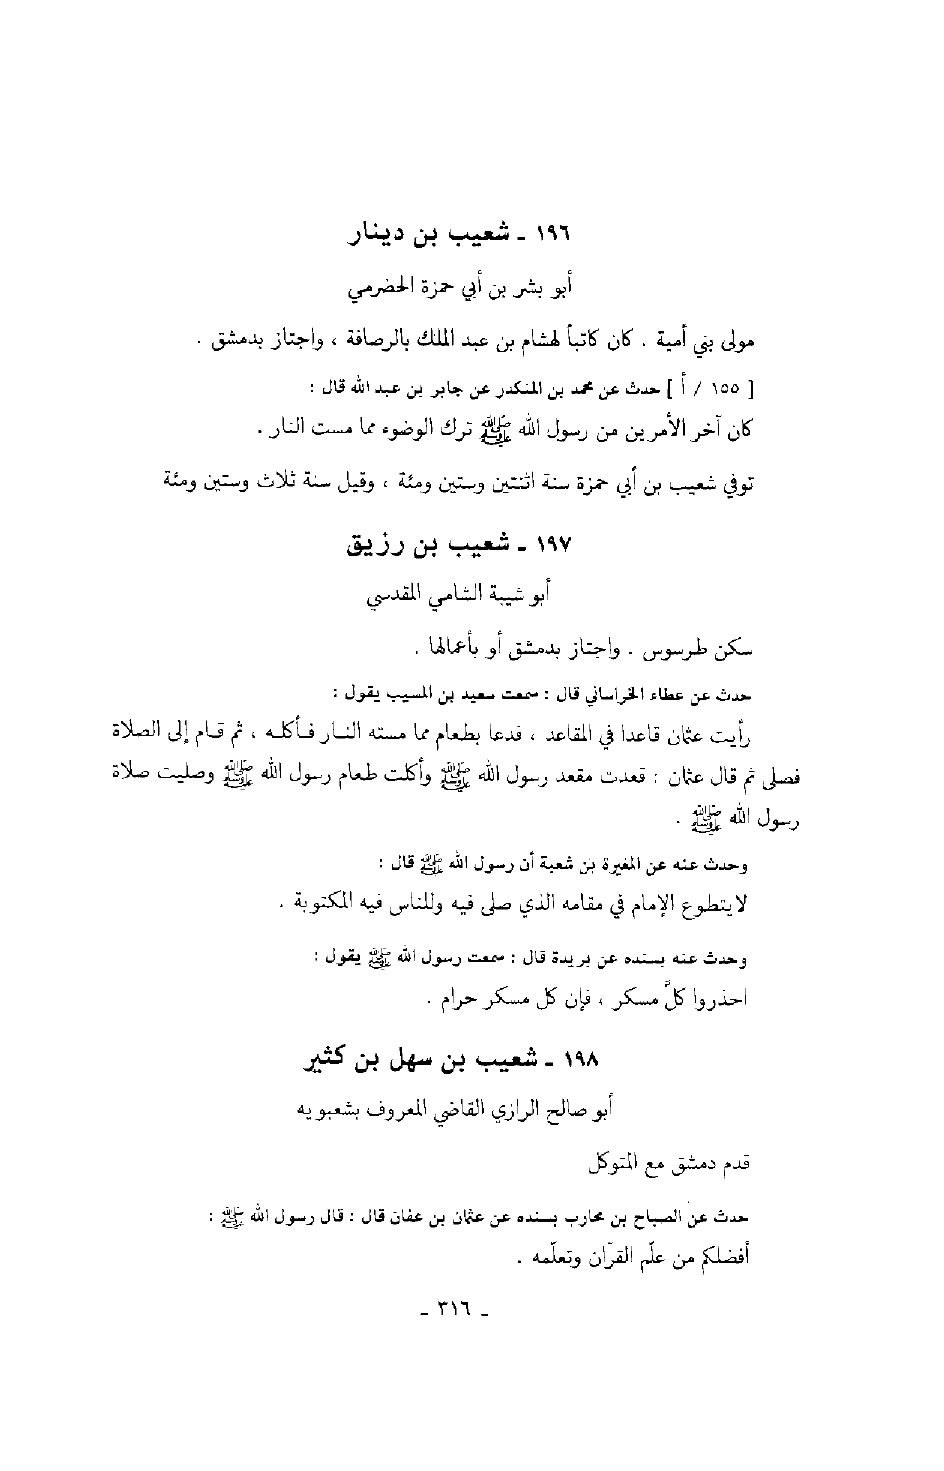 ١٩٦ - شعيب بن دينار
أبو بشر بن أبي حمزة الحضرمي
مولى بني أمية . كان كاتباً لهشام بن عبد الملك بالرصافة ، واجتاز بدمشق .
[ ١٥٥ / أ ] حدث عن محمد بن المنكدر عن جابر بن عبد الله قال :
كان آخر الأمرين من رسول الله ﷺ ترك الوضوء مما مست النار .
توفي شعيب بن أبي حمزة سنة اثنتين وستين ومئة ، وقيل سنة ثلاث وستين ومئة
١٩٧ - شعيب بن رزيق
أبو شيبة الشامي المقدسي
سكن طرسوس . واجتاز بدمشق أو بأعمالها .
حدث عن عطاء الخراساني قال : سمعت سعيد بن المسيب يقول :
رأيت عثمان قاعدا في المقاعد ، فدعا بطعام مما مسته النار فأكله ، ثم قام إلى الصلاة
فصلى ثم قال عثمان : قعدت مقعد رسول الله ﷺ وأكلت طعام رسول الله ﷺ وصليت صلاة
رسول الله ﷺ .
وحدث عنه عن المغيرة بن شعبة أن رسول الله ﷺ قال :
لا يتطوع الإمام في مقامه الذي صلى فيه وللناس فيه المكتوبة .
وحدث عنه بسنده عن بريدة قال : سمعت رسول الله ﷺ يقول :
احذروا كلَّ مسكر ، فإن كل مسكر حرام .
١٩٨ - شعيب بن سهل بن كثير
أبو صالح الرازي القاضي المعروف بشعبويه
قدم دمشق مع المتوكل
حدث عن الصباح بن محارب بسنده عن عثمان بن عفان قال : قال رسول الله ﷺ :
أفضلكم من علّم القرآن وتعلّمه .
- ٣١٦ -